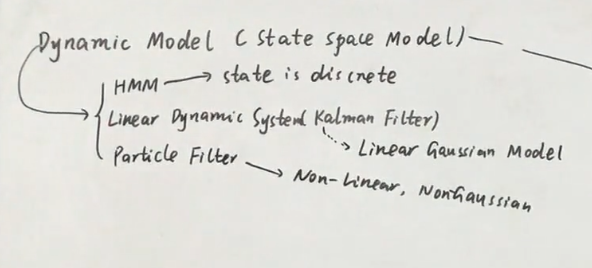 Dynamic Model (State space Model)
HMM → state is discrete
Linear Dynamic System (Kalman Filter)
Linear Gaussian Model
Particle Filter
Non-Linear, NonGaussian